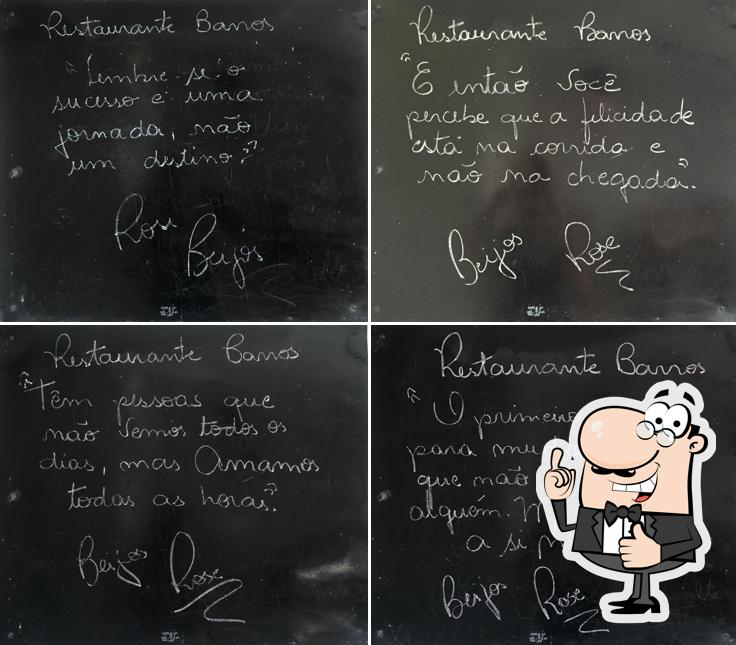 Restaurante Barros
"Lembre-se: o
sucesso é uma
jornada, não
um destino."
Rose
Beijos
Restaurante Barros
"E então você
percebe que a felicidade
está na corrida e
não na chegada".
Beijos Rose
Restaurante Barros
"Têm pessoas que
não vemos todos os
dias, mas Amamos
todas as horas".
Beijos Rose
Restaurante Barros
"O primeiro
para mu
que não
alguém.
a si
Beijos Rose